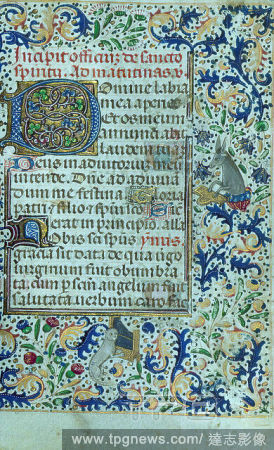 Incipit officiuz de sancto
spiritu. Ad matutinas. v.
Domine labia
mea aperies
Et os meum
annunciabit
laudem tu
Deus in adiutorium meu
intende. Dne ad adiuua
dum me festina Gloria
patri & filio & spiritui
erat in principio
Nobis sci spus ymnus
gracia sit data de qua uirgo
uirginum fuit obumbra
ta cum per scm angelum fuit
salutata uerbum caro fac
www.tpgnews.com/ 達志影像